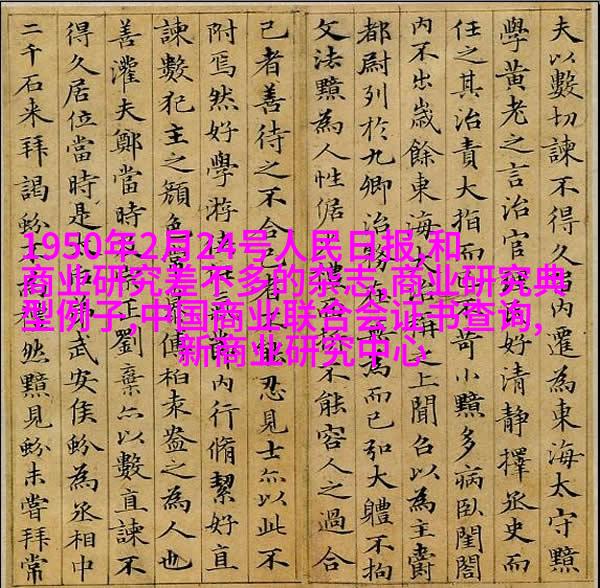 1950年2月24号人民日报,和
商业研究差不多的杂志,商业研究典
型例子,中国商业联合会证书查询,
新商业研究中心
夫以數切諫不得久內遷為東海太守黯
學黃老之言治官好清靜擇丞史而
任之其治責大指而不苛小黯多病臥閨閤
內不出歲餘東海大治之上聞召以為主爵
都尉列於九卿治務在為而已弘大體不拘
文法黯為人性倨禮不能容人之過合
己者善待之不合己者忍見士亦以此不
附焉然好學游節內行脩絜好直
諫數犯主之顏色常傅柏袁盎之為人也
善灌夫鄭當時劉棄亦以數直諫不
得久居位當時是弟武安侯蚡為丞相中
二千石来拜謁蚡然黯見蚡未嘗拜常